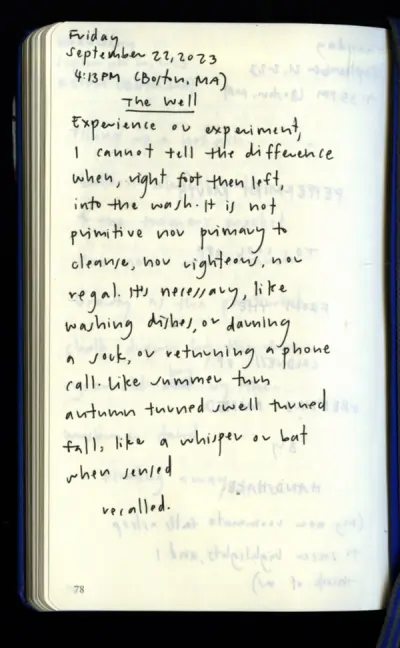 Friday
September 22, 2023
4:13PM (Boston, MA)
The Well
Experience or experiment,
I cannot tell the difference
when, right foot then left,
into the wash. It is not
primitive nor primary to
cleanse, nor righteous, nor
regal. It's necessary, like
washing dishes, or darning
a sock, or returning a phone
call. Like summer turn
autumn turned swell turned
fall, like a whisper or bat
when sensed
recalled.
78